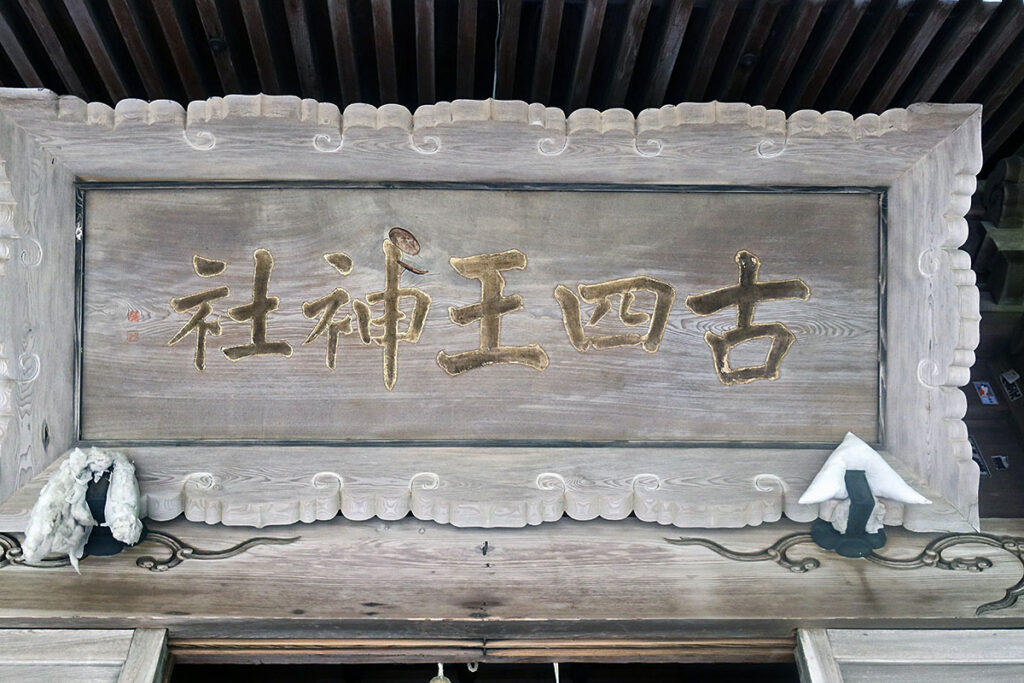 古四王神社